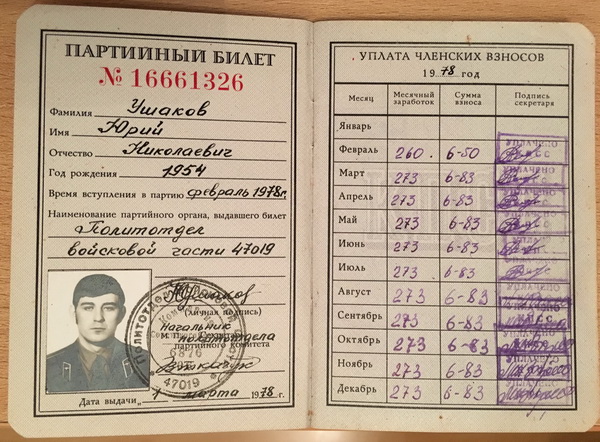 ПАРТИЙНЫЙ БИЛЕТ
№ 16661326
Фамилия Ушаков
Имя Юрий
Отчество Николаевич
Год рождения 1954
Время вступления в партию февраль 1978г.
Наименование партийного органа, выдавшего билет
Политотдел
войсковой части 47019
(личная подпись)
Начальник
политотдела
М. П. Секретарь
партийного комитета
ПОЛИТОТДЕЛ
6876
47019
Дата выдачи 7 марта 1978 г.
УПЛАТА ЧЛЕНСКИХ ВЗНОСОВ
1978 год
Месяц Месячный заработок Сумма взноса Подпись секретаря
Январь
Февраль 260 6-50 УПЛАЧЕНО
Март 273 6-83 УПЛАЧЕНО
Апрель 273 6-83
Май 273 6-83
Июнь 273 6-83
Июль 273 6-83
Август 273 6-83
Сентябрь 273 6-83
Октябрь 273 6-83
Ноябрь 273 6-83
Декабрь 273 6-83